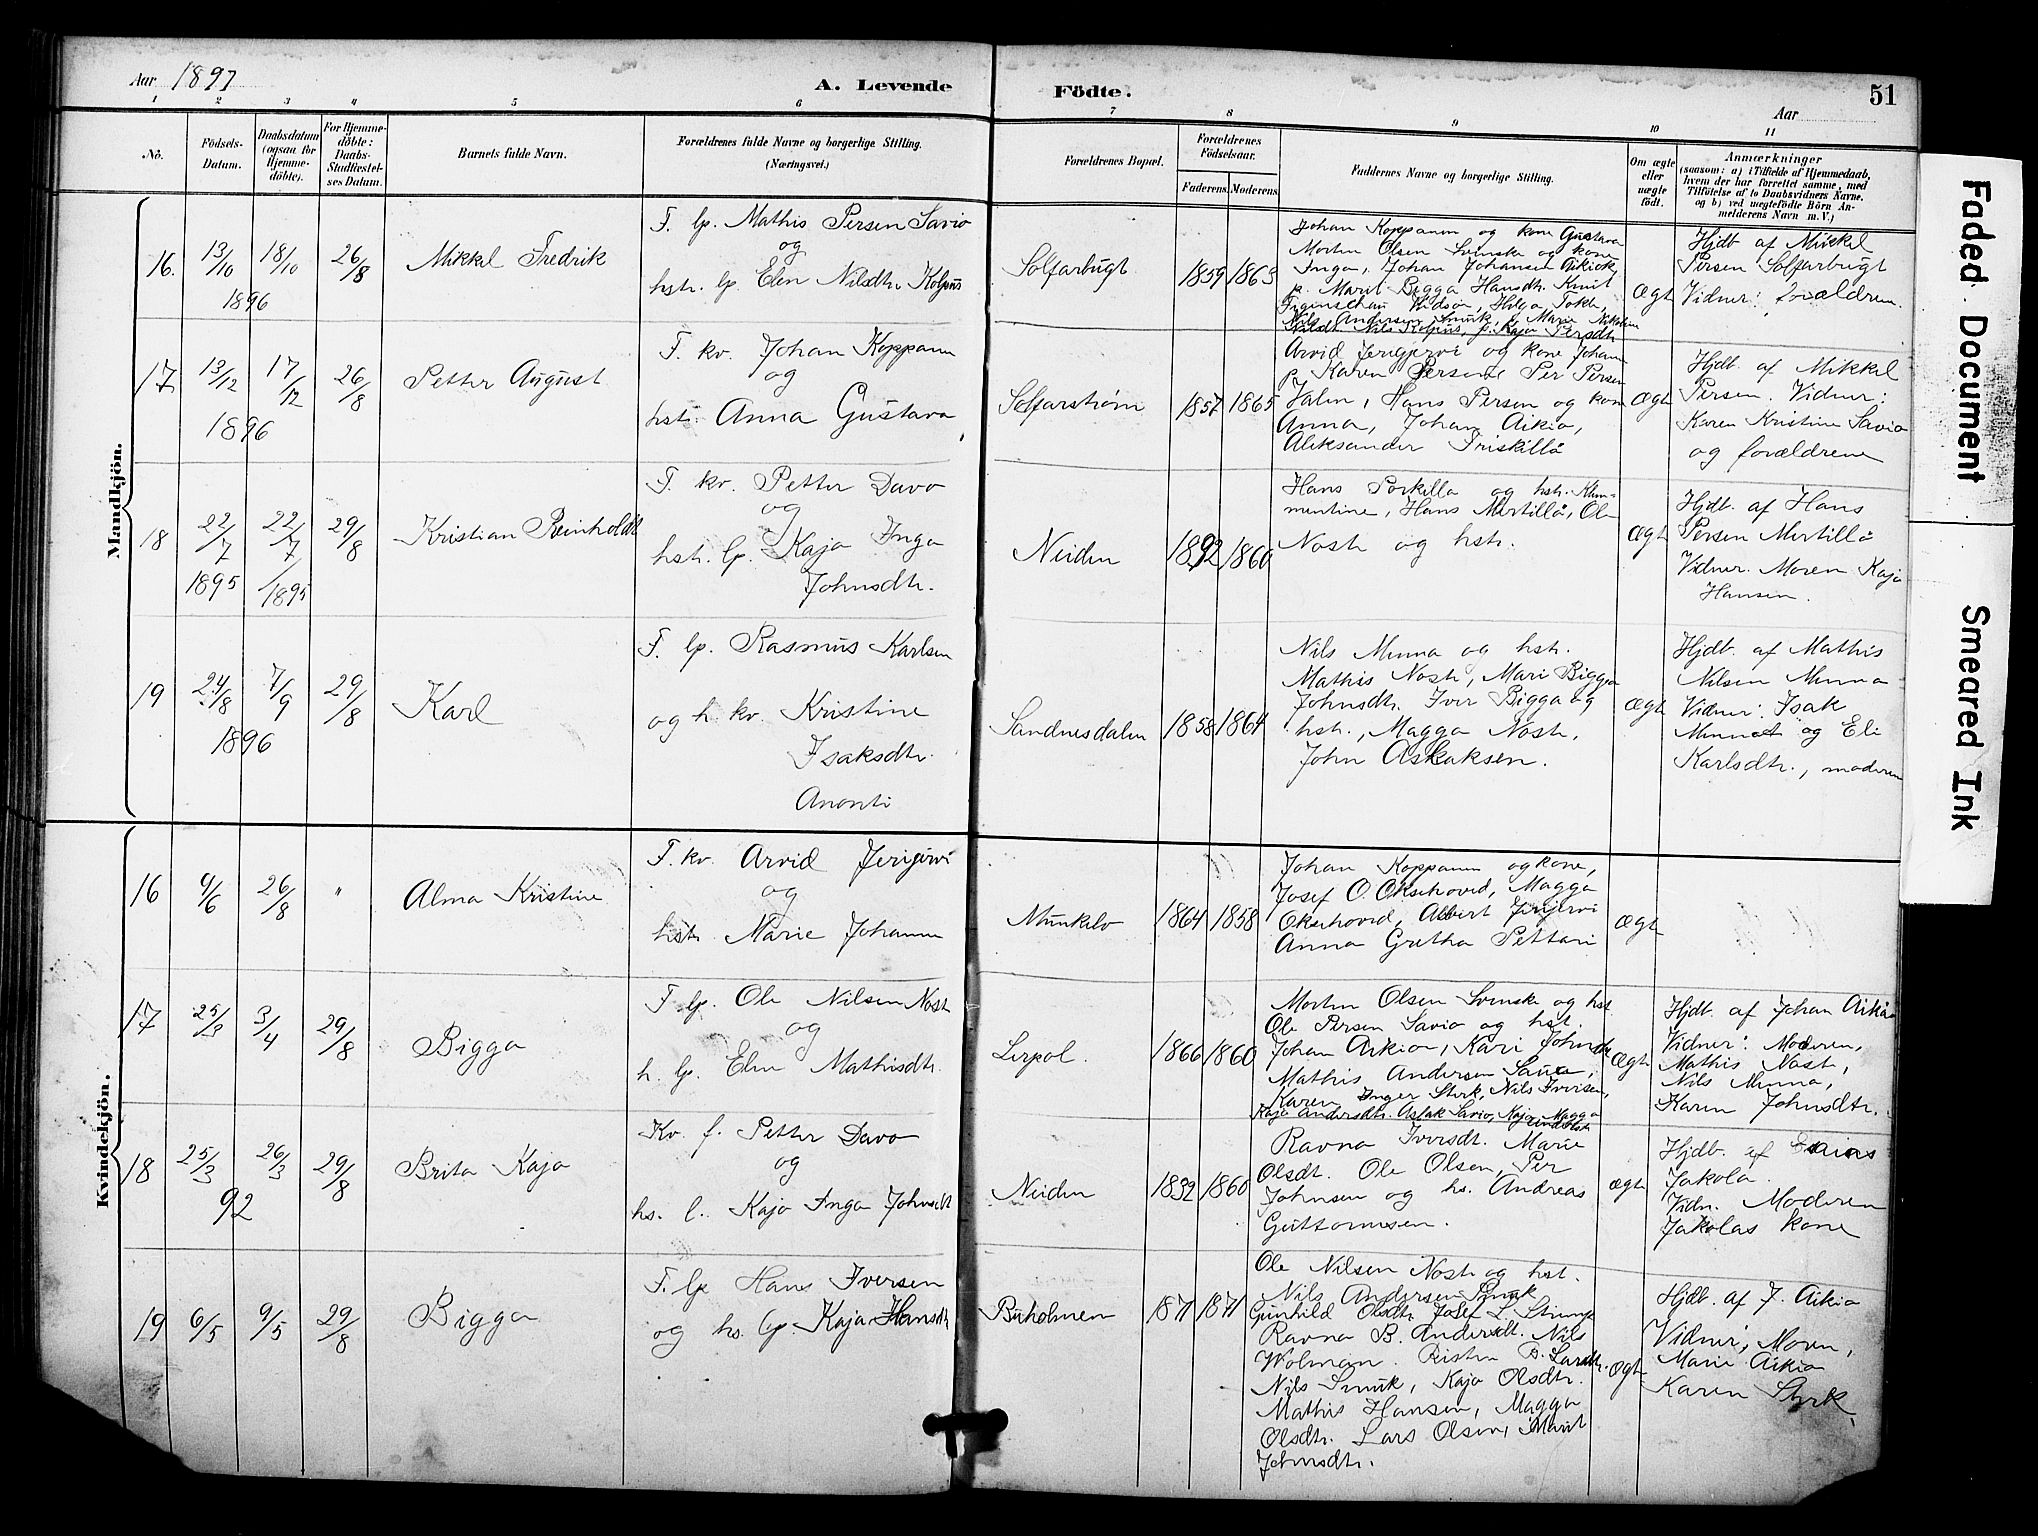 Aar 1897
A. Levende
Födte.
Aar
51
1 2 3 4 5 6 7 8 9 10 11
No.
Födsels-
Datum.
Daabsdatum
(ogsaa for
Hjemme-
döbte).
For Hjemme-
döbte:
Daabs-
Stadfæstel-
ses Datum.
Barnets fulde Navn.
Forældrenes fulde Navne og borgerlige Stilling.
(Næringsvei.)
Forældrenes Bopæl.
Forældrenes
Födselsaar.
Faderens. Moderens.
Faddernes Navne og borgerlige Stilling.
Om ægte
eller
uægte
födt.
Anmærkninger
(saasom: a) i Tilfælde af Hjemmedaab,
hvem der har forrettet samme, med
Tilföielse af to Daabsvidners Navne,
og b) ved uegtefödte Börn An-
melderens Navn m. V.)
Mandkjön.
16. 13/10 18/10 26/8
1896
Mikkel Fredrik
F. lp. Mathis Persen Savio
og
hstr. lp. Elen Nilsdtr. Kolpus
Solfarbugt
1859 1863
Johan Koppanen og kone Gustava
Morten Olsen Svenske og kone
Inga, Johan Johansen Aikio,
p. Marit Bigga Hansdtr. Knut
Figenschau Vidsön, Helga
Nils Andersen Smuk, Marie Nikoline
Nils Kolpus, p. Kaja Persdtr.
Ægt
Hjdb af Mikkel
Persen Solfarbugt
Vidner: forældrene.
17 13/12 17/12 26/8
1896
Petter August
F. kv. Johan Koppanen
og
hstr. Anna Gustava
Solfarstrøm
1857 1865
Arvid Jerijervi og kone Johan
p. Karen Persen Per Persen
Jalin, Hans Persen og kone
Anna, Johan Aikio,
Aleksander Friskillö
Ægt
Hjdb. af Mikkel
Persen. Vidner:
Karen Kristine Savio
og forældrene
18 22/7 22/7 29/8
1895 /1895
Kristian Reinholdt
F. kv. Petter Davo
og
hstr. lp. Kaja Inga
Johnsdtr.
Neiden
1892 1860
Hans Porkilla og hstr. Klem-
mentine, Hans Mertillä, Ole
Noste og hstr.
Ægt
Hjdb. af Hans
Persen Mertillä
Vidner. Moren Kaja
Hansen.
19 24/8 7/9 29/8
1896
Karl
F. lp. Rasmus Karlsen
og h. kv. Kristine
Isaksdtr.
Ananti
Sandnesdalen
1858 1864
Nils Menna og hstr.
Mathis Noste, Mari Bigga
Johnsdtr. Iver Bigga og
hstr., Magga Noste,
John Aslaksen.
Ægt
Hjdb. af Mathis
Nilsen Menna
Vidner: Isak
og Eli
Karlsdtr., moderen
Kvindekjön.
16 9/6 26/8 "
Alma Kristine
F. kv. Arvid Jerijervi
og
hstr. Marie Johanne
Munkelv
1864 1858
Johan Koppanen og kone,
Josef O. Oksehoved, Magga
Oksehoved, Albert Jerijervi
Anna Gretha Pettari
Ægt
17 25/3 3/4 29/8
Bigga
F. lp. Ole Nilsen Noste
og
h. lp. Elen Mathisdtr.
Lerpol.
1866 1860
Morten Olsen Svenske og hst.
Ole Persen Savio og hst.
Johan Aikio, Kari Johnsdtr
Mathis Andersen Sauea,
Karen Inger Sterk, Nils Iversen,
Kaja Andersdtr. Aslak Savio, Kaja Magga
Ægt
Hjdb. af Johan Aikio
Vidner: Moderen,
Mathis Noste,
Nils Menna,
Karen Johnsdtr.
18 25/3 26/3 29/8
92
Brita Kaja
Kv. f. Petter Davo
og
hs. l. Kaja Inga Johnsdt
Neiden
1832 1860
Ravna Iversdt. Marie
Olsdt. Ole Olsen, Per
Johnsen og hs. Andreas
Guttormsen.
Ægt
Hjdb. af Esaias
Jakola.
Vidn. Moderen
Jakolas kone
19 6/5 9/5 29/8
Bigga
F. lp Hans Iversen
og hs. lp. Kaja Hansdt
Buholmen
1871 1871
Ole Nilsen Noste og hst.
Nils Andersen Smuk
Gunhild Olsdtr. Josef L.
Ravna B. Andersdt. Nils
Wolman. Risten B. Larsdtr.
Nils Smuk, Kaja Olsdtr.
Mathis Hansen, Magga
Olsdtr. Lars Olsen, Marit
Johnsdtr.
Ægt
Hjdb. af J. Aikio
Vidner, Moren,
Marie Aikio
Karen Sterk,
Faded Document
Smeared Ink